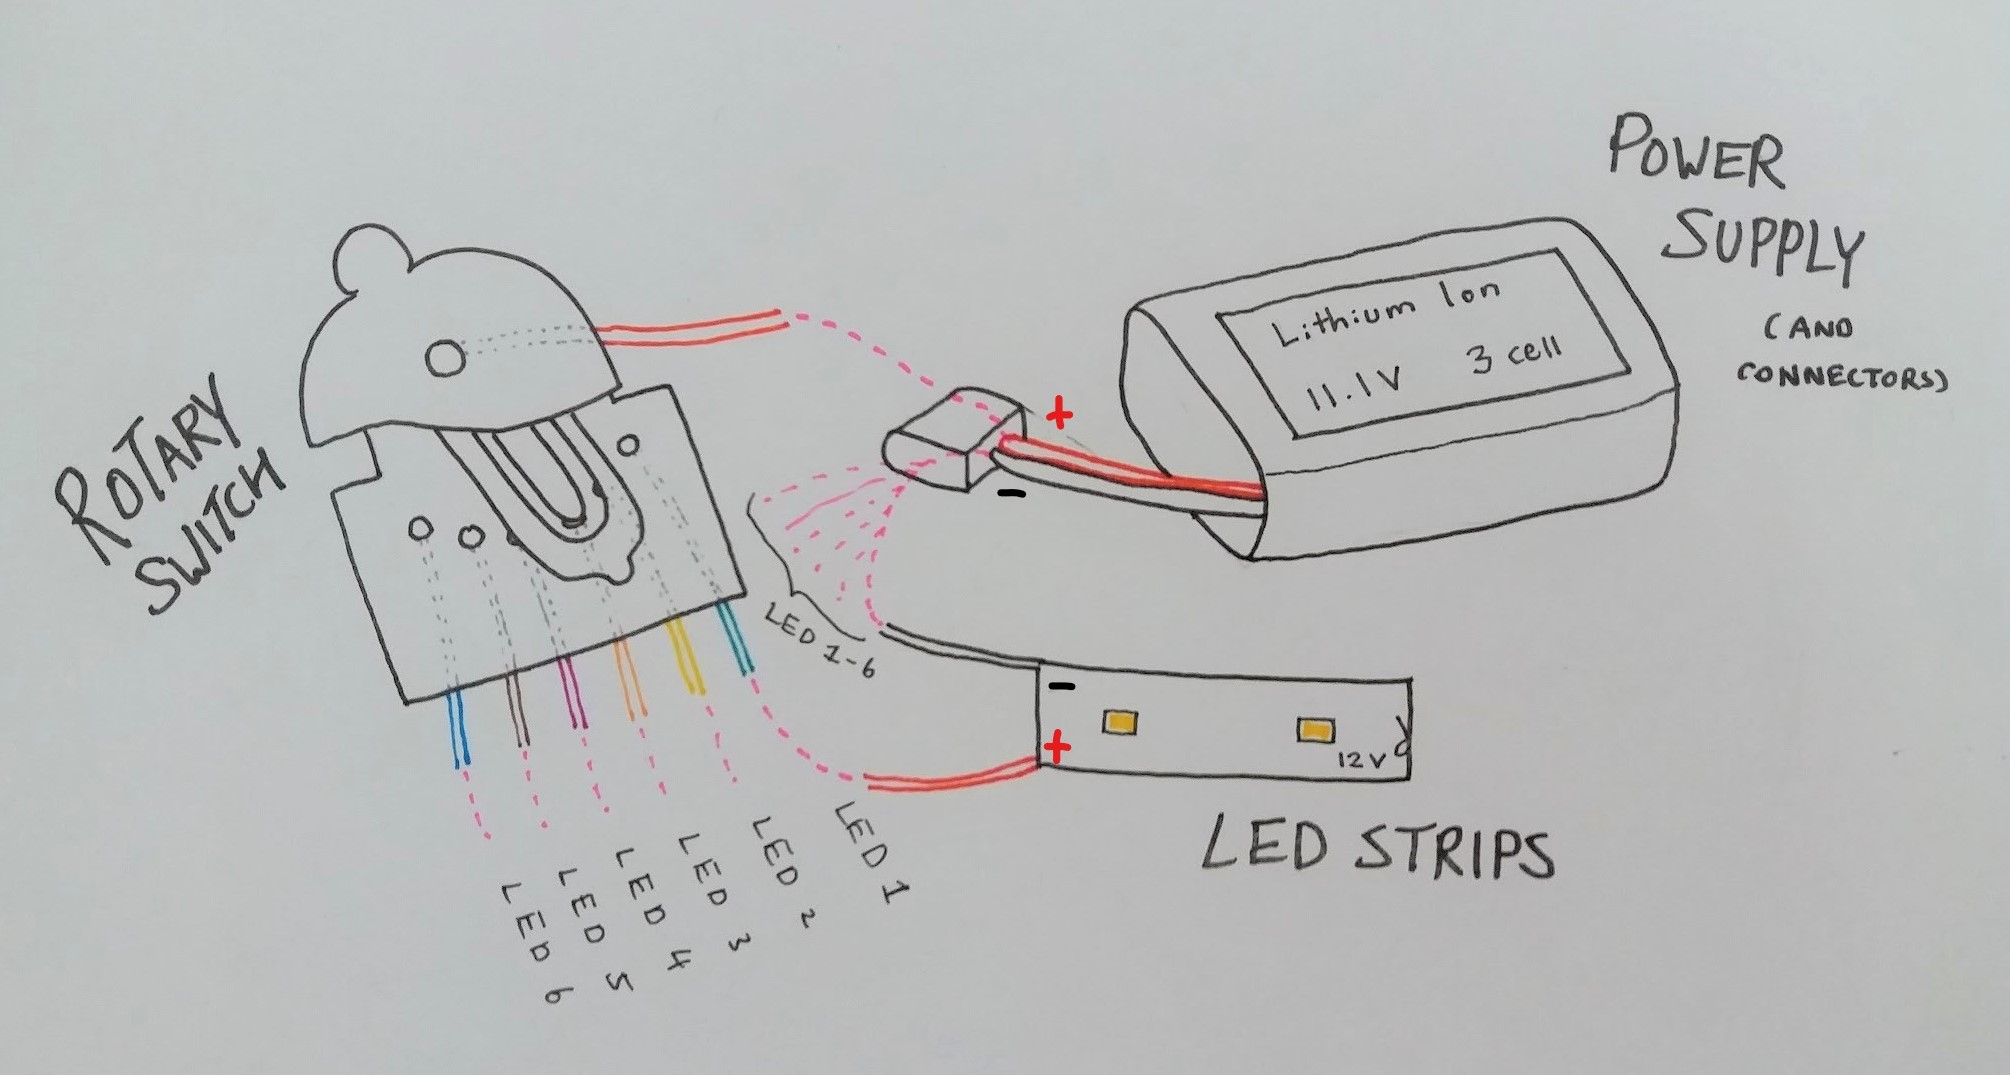 POWER
SUPPLY
(AND
CONNECTORS)
Lithium Ion
11.1V 3 cell
+
-
ROTARY
SWITCH
LED 1-6
-
+
12V
LED STRIPS
LED 1
LED 2
LED 3
LED 4
LED 5
LED 6